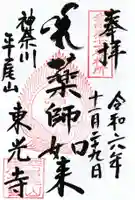 奉拝
令和六年
十月二十九日
薬師如来
神奈川
平尾山
東光寺